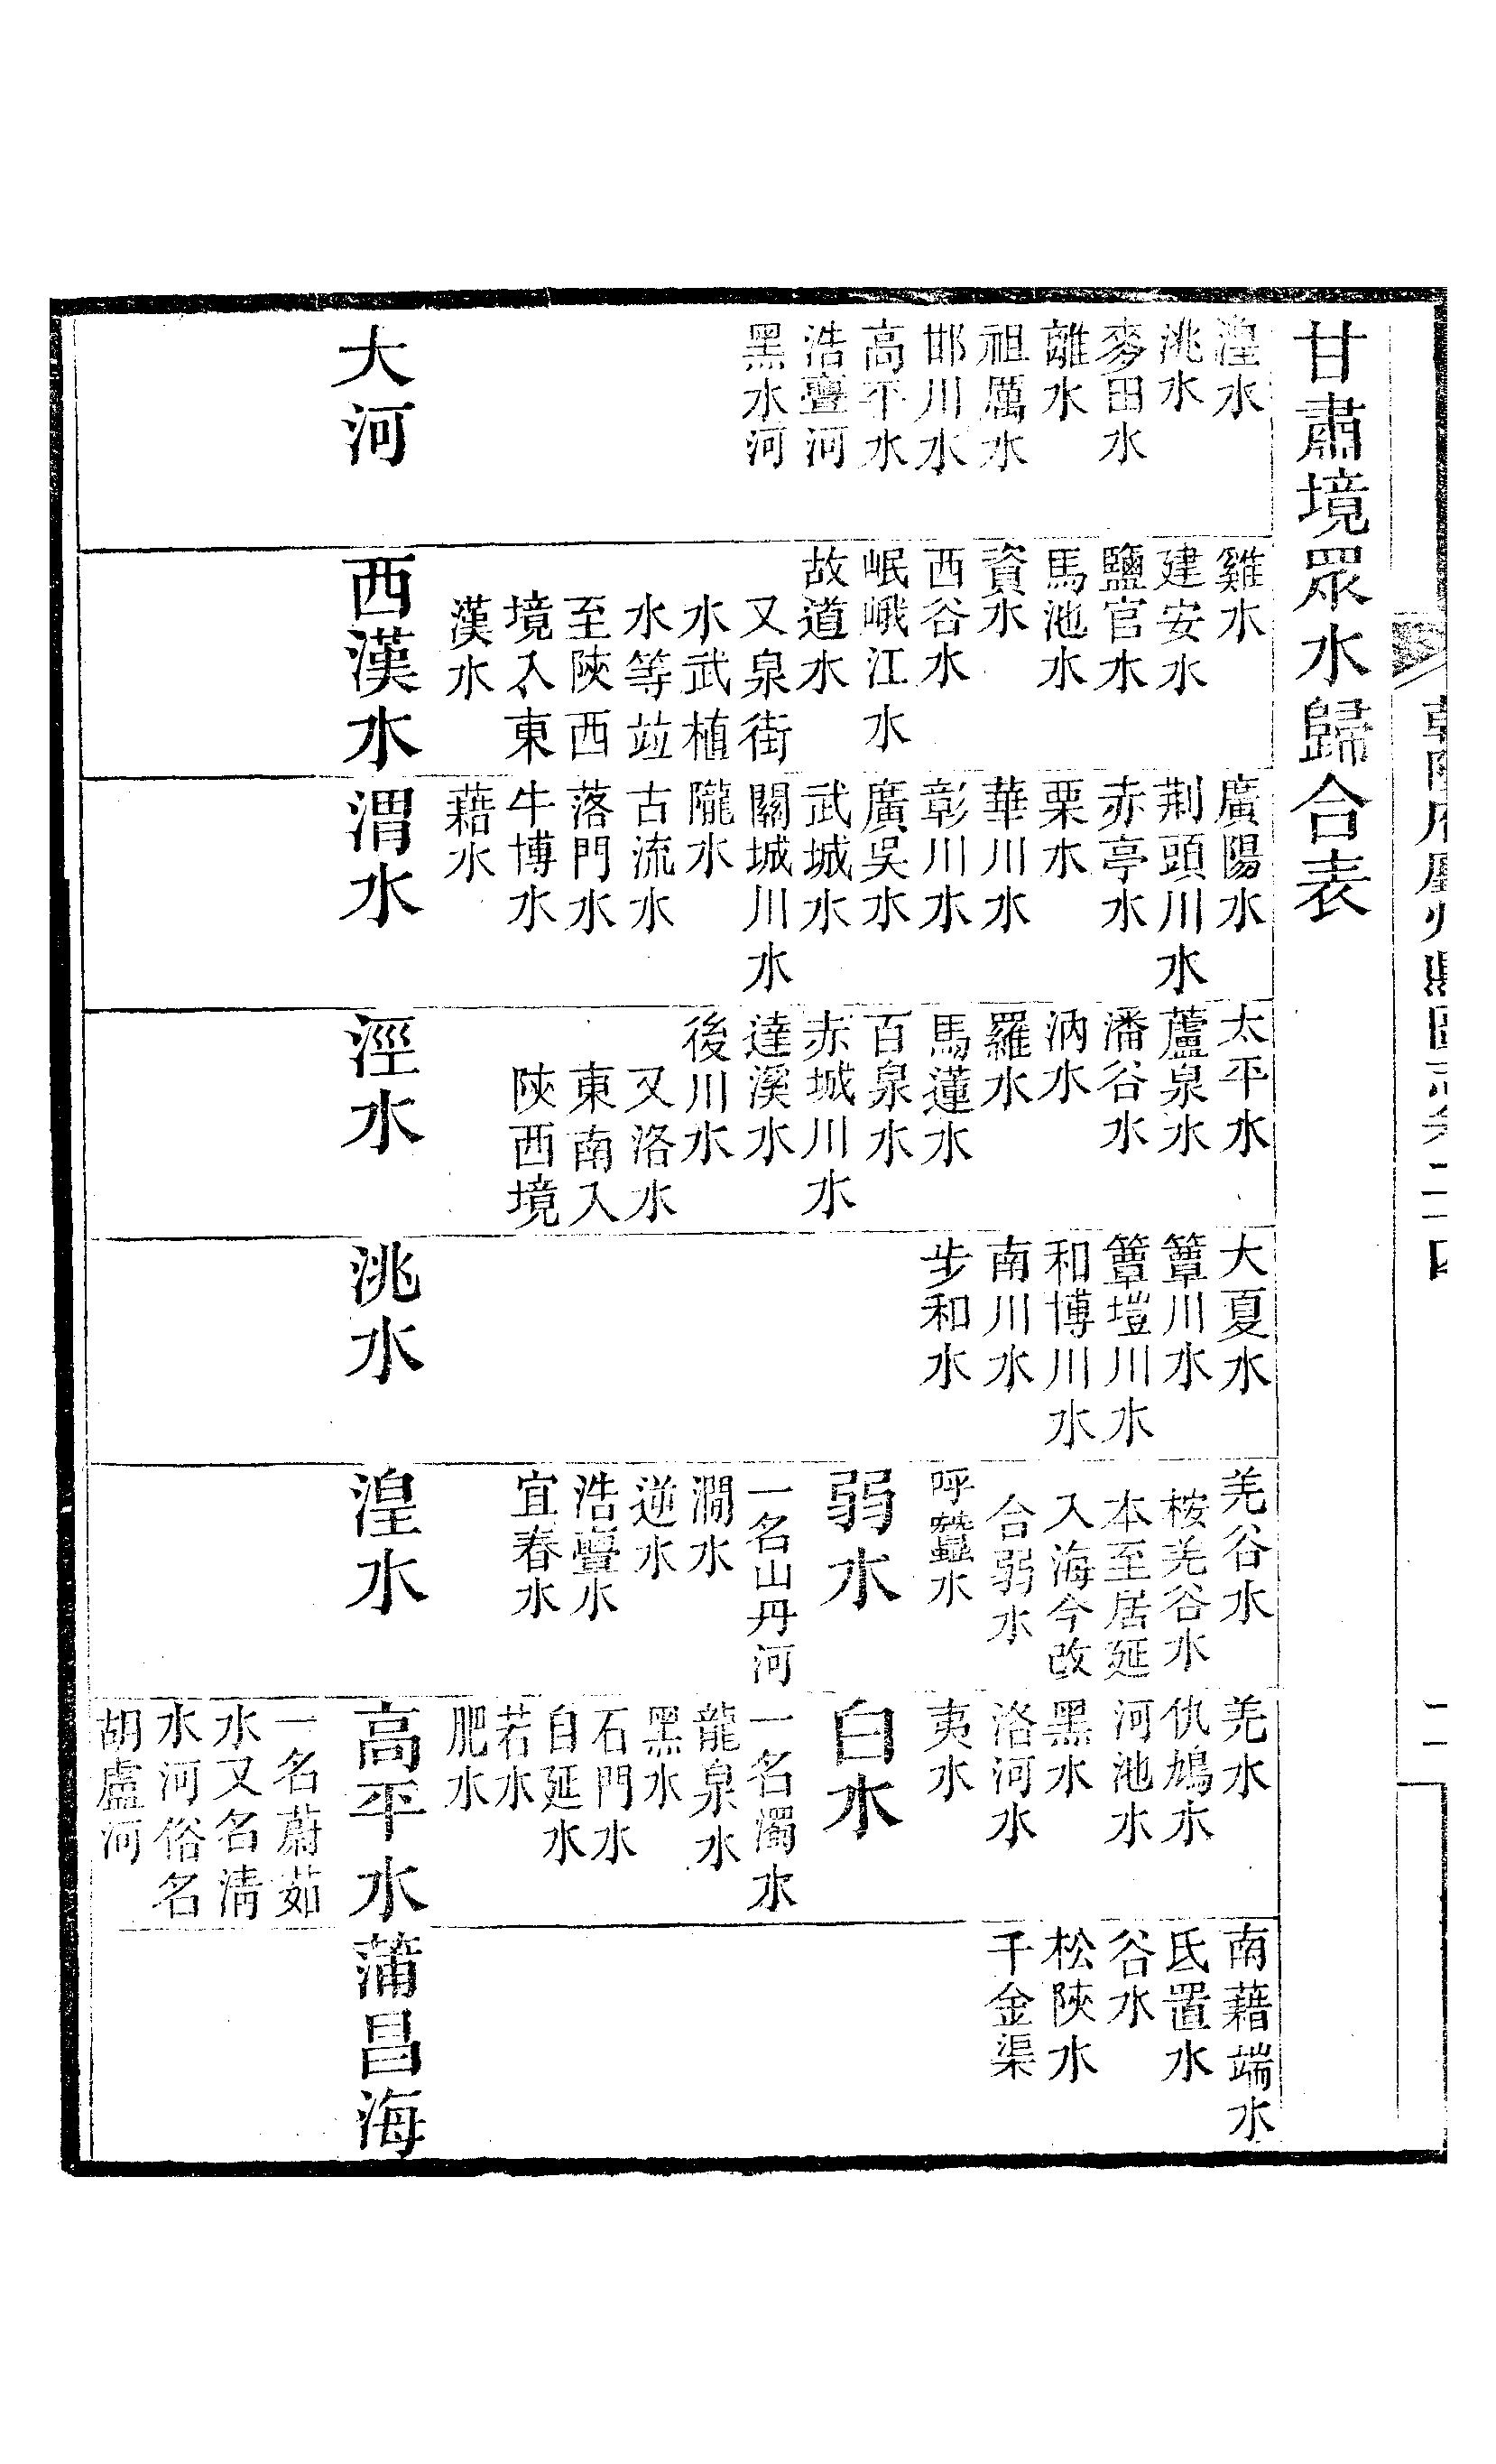 甘肅境眾水歸合表
湟水
洮水
麥田水
離水
祖厲水
邯川水
高平水
浩亹河
黑水河
大河
雞水
建安水
鹽官水
馬池水
資水
西谷水
岷峨江水
故道水
又泉街
水武植
水等竝
至陝西
境入東
漢水
西漢水
廣陽水
荆頭川水
赤亭水
栗水
華川水
彰川水
廣吳水
武城水
關城川水
隴水
古流水
落門水
牛博水
藉水
渭水
太平水
蘆泉水
潘谷水
汭水
羅水
馬蓮水
百泉水
赤城川水
達溪水
後川水
又洛水
東南入
陝西境
涇水
大夏水
簟川水
簟塏川水
和博川水
南川水
步和水
洮水
羌谷水
桉羌谷水
本至居延
入海今改
合弱水
呼蠶水
弱水
一名山丹河
澗水
逆水
浩亹水
宜春水
湟水
羌水
仇鳩水
河池水
黑水
洛河水
夷水
白水
一名濁水
龍泉水
黑水
石門水
自延水
若水
肥水
高平水
一名蔚茹
水又名清
水河俗名
胡盧河
南藉端水
氐置水
谷水
松陝水
千金渠
蒲昌海
二